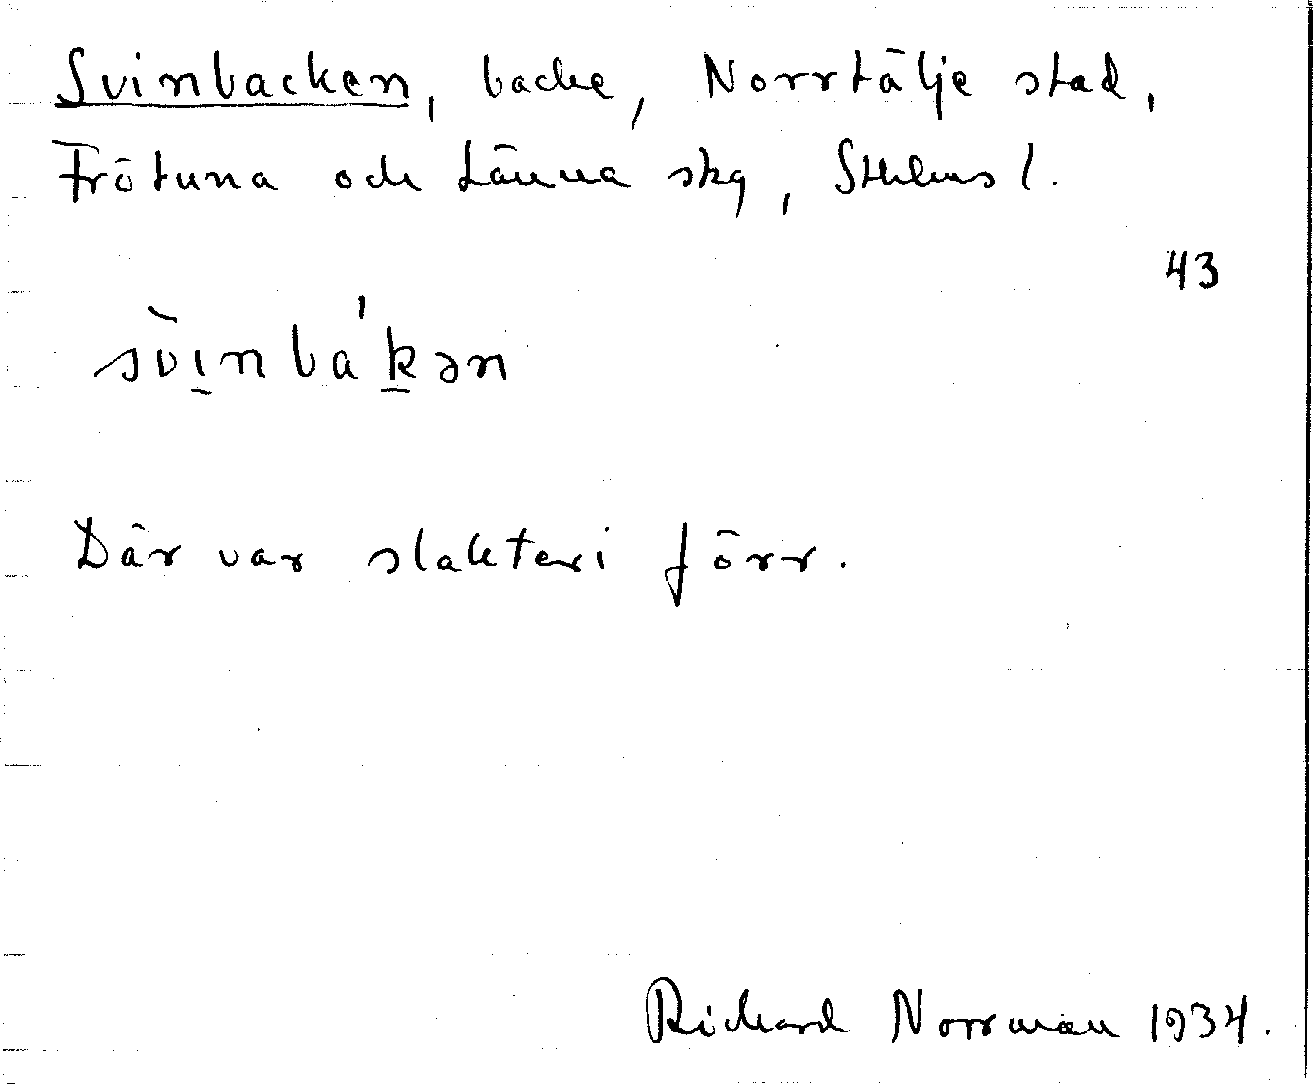 Svinbacken, backe, Norrtälje stad,
Frötuna och Länna skg, Sthlms l.
43
svìnbá'kən
Där var slakteri förr.
Richard Norrman 1934.